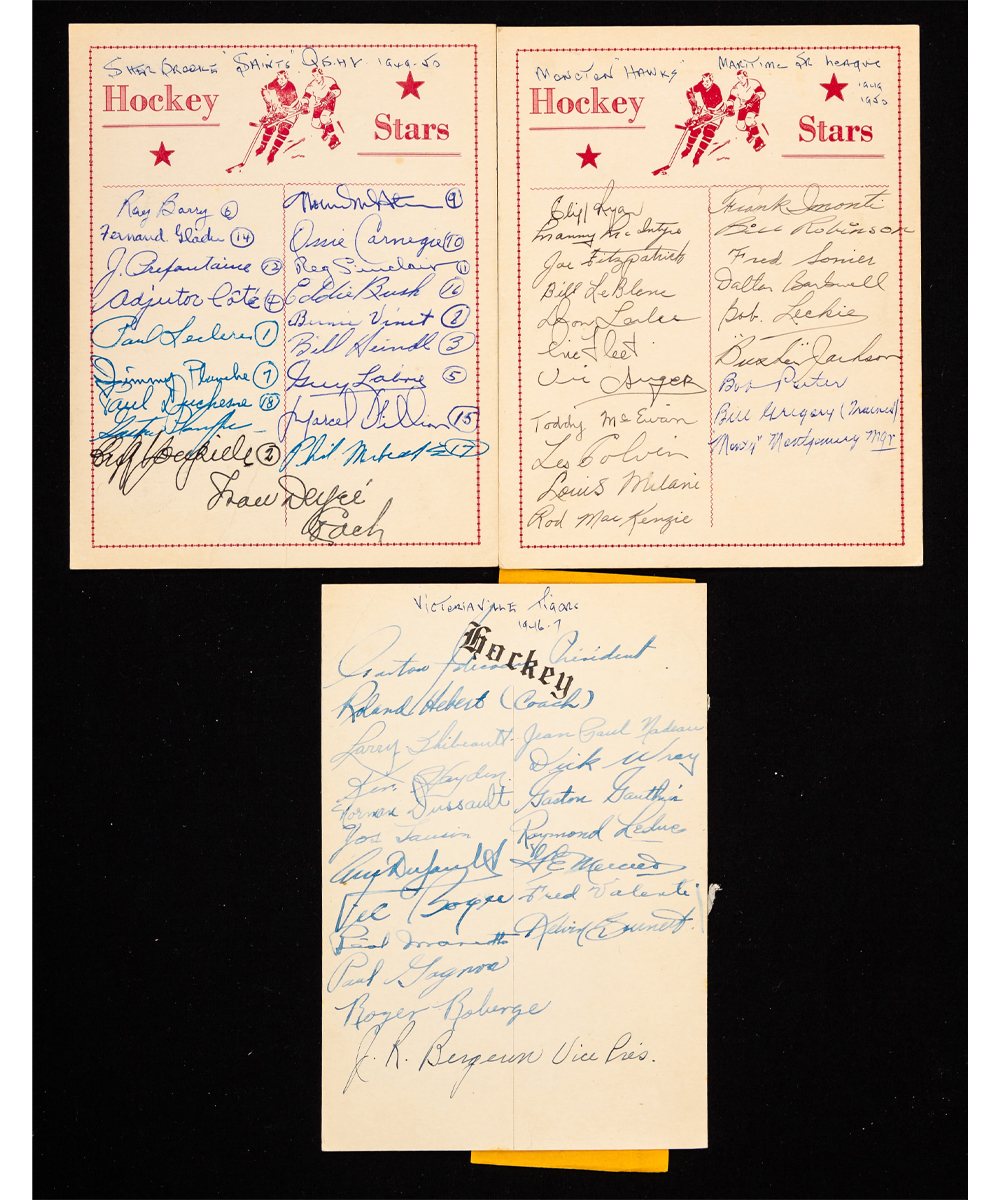 SHERBROOKE 'SAINTS' QSHL 1949-50
Hockey
Stars
Ray Barry 6
Fernand 14
J. Prefontaine 12
Adjutor Coté 4
Paul Leclerc 1
Jimmy Planche 7
Paul Duchesne 18
2
9
Ossie Carnegie 10
Reg Sinclair 11
Eddie Bush 16
Bernie Vinet 8
Bill Heindl 3
Guy Labrie 5
Marcel Fillion 15
Phil 17
Coach
MONCTON 'HAWKS' MARITIME SR LEAGUE
1949
1950
Hockey
Stars
Cliff Ryan
Manny McIntyre
Joe Fitzpatrick
Bill LeBlanc
Eric Fleet
Vic Auger
Toddy McEwan
Les Colvin
Louis Milani
Rod MacKenzie
Frank Imonti
Bill Robinson
Fred Somer
Dalton Bardwell
Bob. Leckie
Jackson
Bob Porter
Bill Gregory (Trainer)
Montgomery Mgr
VICTORIAVILLE Tigers
1946-7
Hockey
Président
Roland Hebert (Coach)
Larry Thibeault
Ken Hayden
Norman Dussault
Vic
Paul Gagnon
Roger Roberge
J. R. Bergeron Vice Prés.
Jean Paul Nadeau
Dick Wray
Gaston Gauthier
Raymond Leduc
Fred Valenti